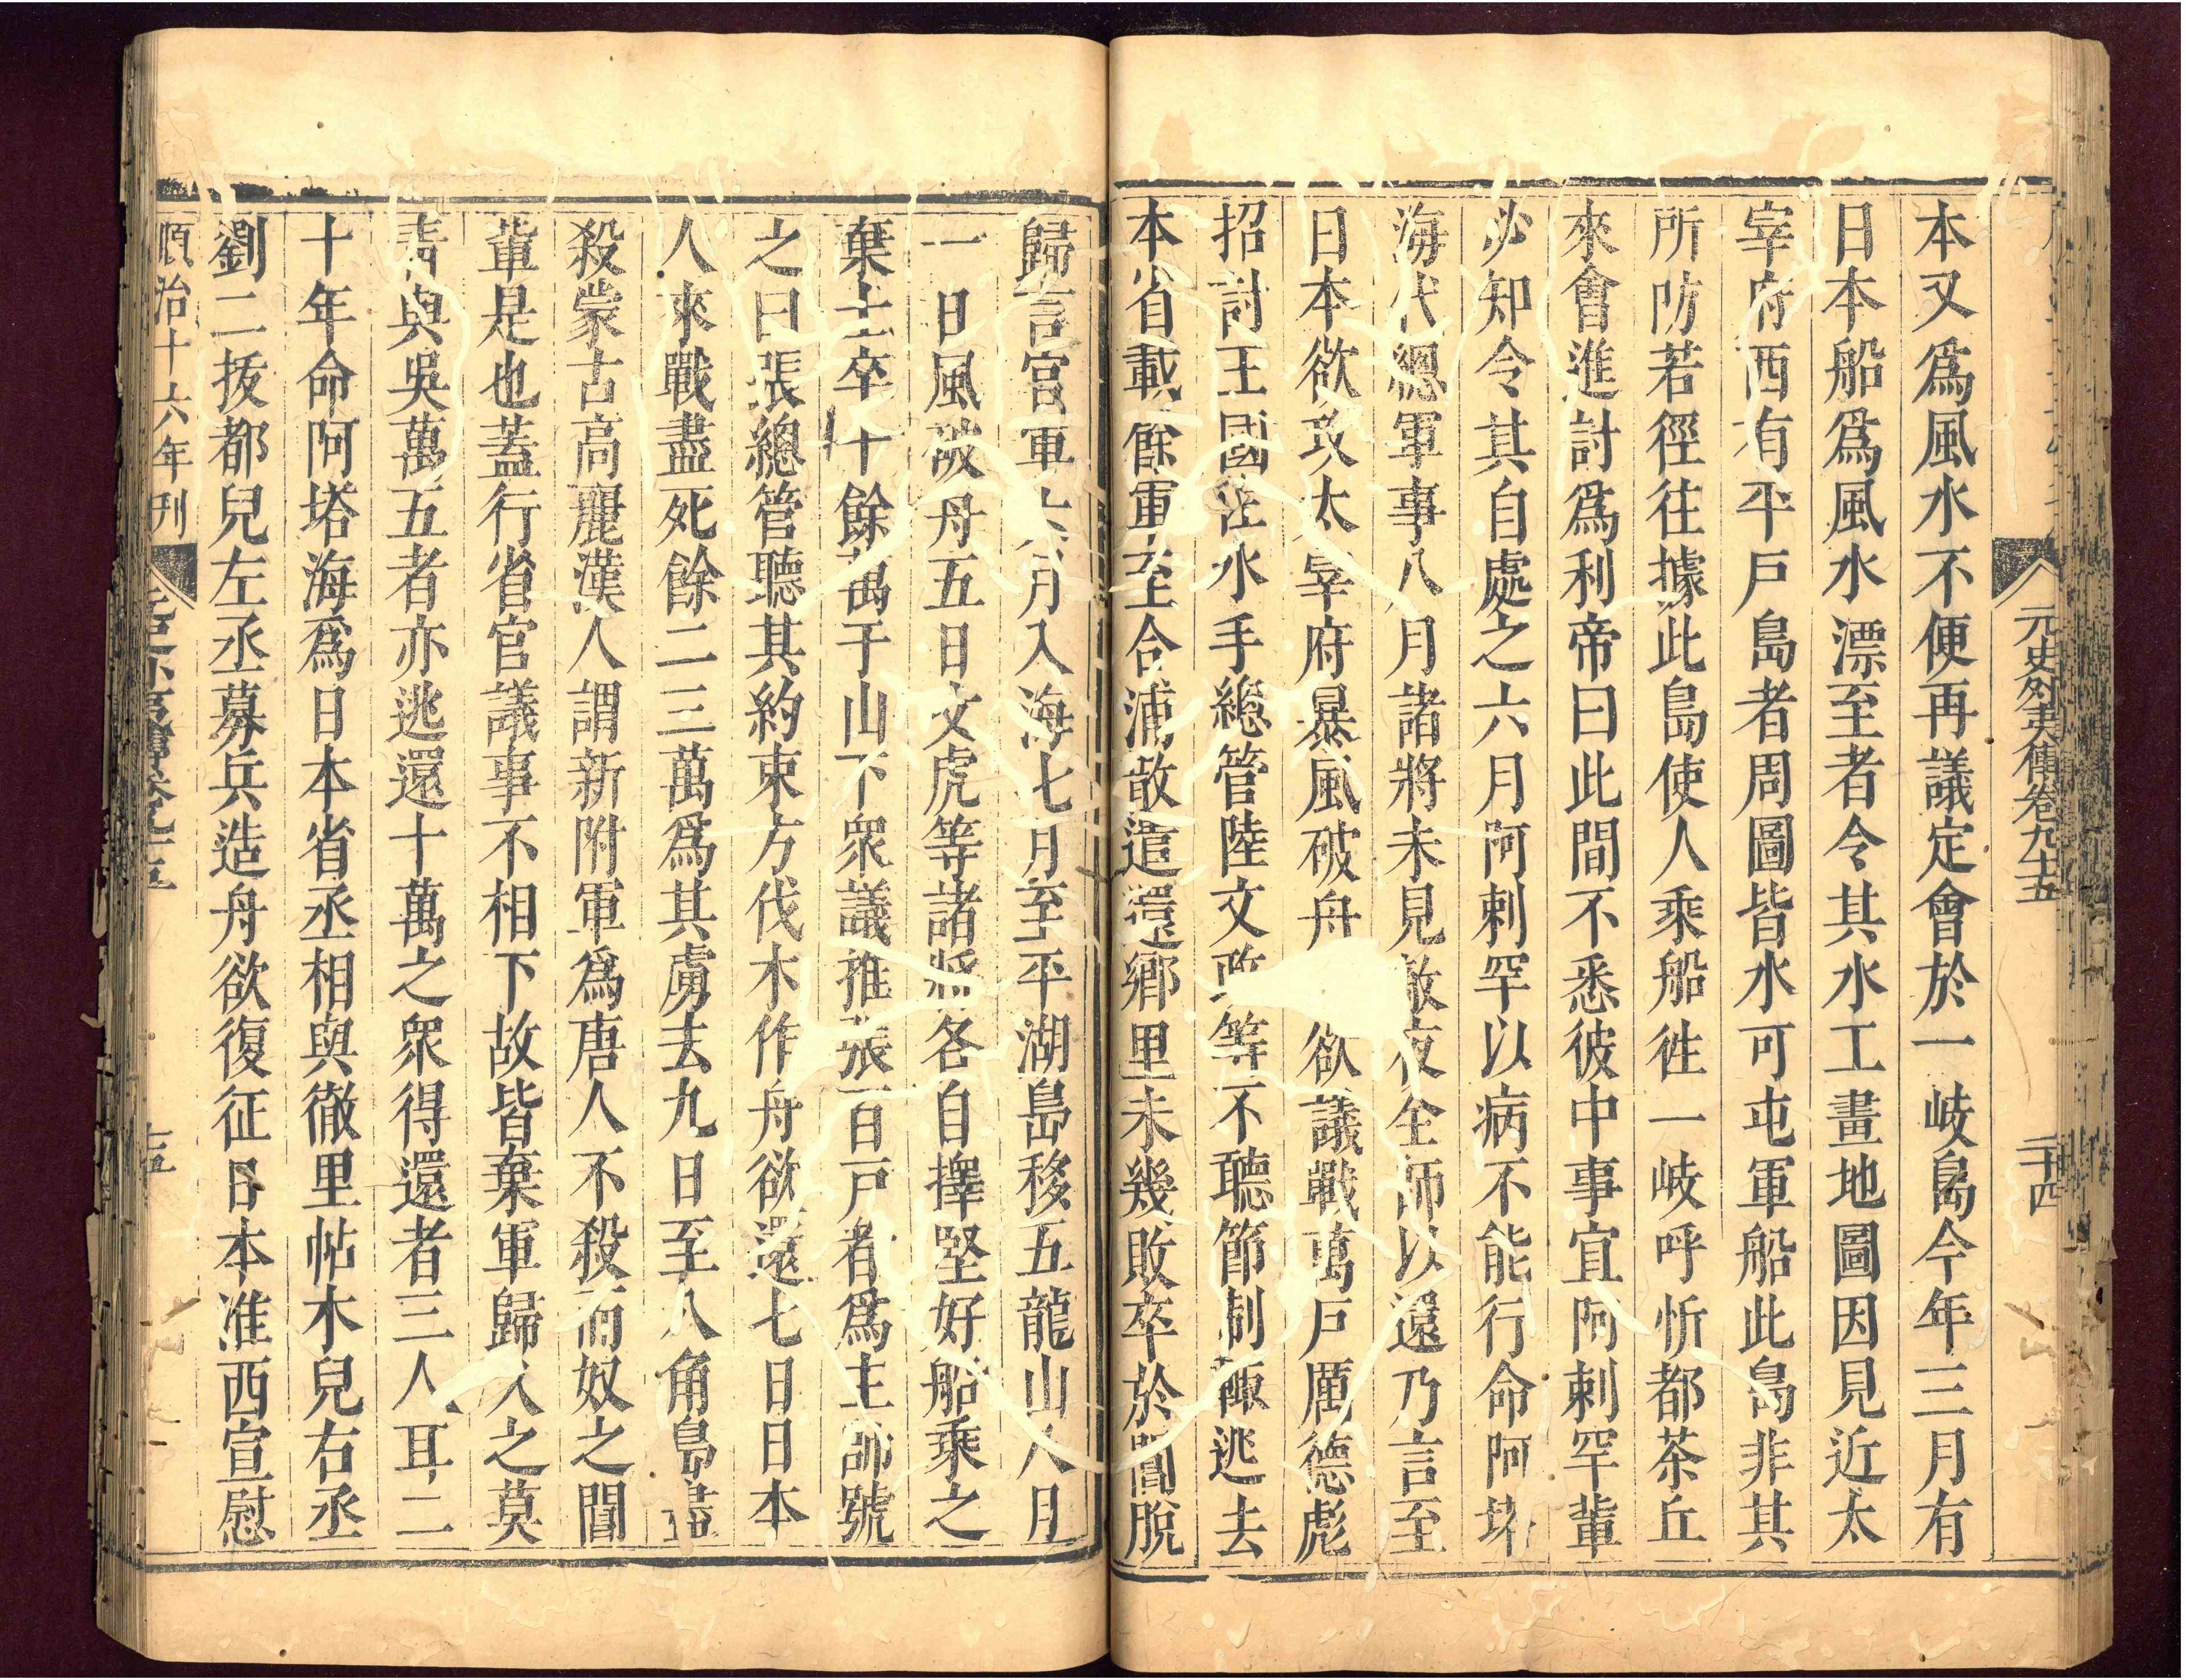 元史外夷傳卷九十五
二十四
本又爲風水不便再議定會於一岐島今年三月有
日本船爲風水漂至者令其水工畫地圖因見近太
宰府西有平戶島者周圖皆水可屯軍船此島非其
所防若徑往據此島使人乘船徃一岐呼忻都茶丘
來會進討爲利帝曰此間不悉彼中事宜阿剌罕輩
必知令其自處之六月阿剌罕以病不能行命阿塔
海代總軍事八月諸將未見敵夜全師以還乃言至
日本欲攻太宰府暴風破舟 欲議戰萬戶厲德彪
招討王國 水手總管陸文政等不聽節制輒逃去
本省載餘軍至合浦散遣還鄉里未幾敗卒於閶脫
歸言官軍六月入海七月至平湖島移五龍山八月
一日風破舟五日文虎等諸將各自擇堅好船乘之
棄士卒十餘萬于山下衆議推張百戶者爲主帥號
之曰張總管聽其約束方伐木作舟欲還七日日本
人來戰盡死餘二三萬爲其虜去九日至八角島盡
殺蒙古高麗漢人謂新附軍爲唐人不殺而奴之閶
輩是也蓋行省官議事不相下故皆棄軍歸久之莫
青與吳萬五者亦逃還十萬之衆得還者三人耳二
十年命阿塔海爲日本省丞相與徹里帖木兒右丞
劉二拔都兒左丞募兵造舟欲復征日本淮西宣慰
順治十六年刊
十五